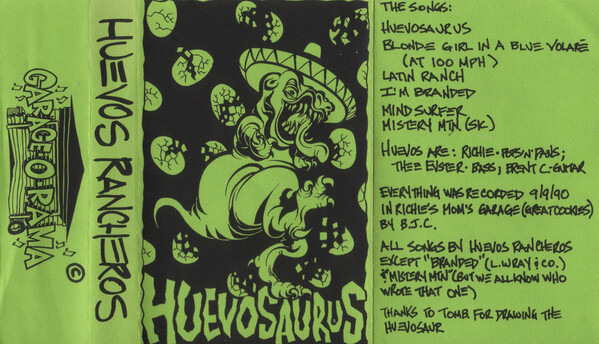 GARAGEORAMA
©
HUEVOS RANCHEROS
HUEVOSAURUS
THE SONGS:
HUEVOSAURUS
BLONDE GIRL IN A BLUE VOLARÉ
(AT 100 MPH)
LATIN RANCH
I'M BRANDED
MIND SURFER
MISTERY MTN. (SIC)
HUEVOS ARE: RICHIE - POTS'N'PANS;
THEE EVSTER - BASS; BRENT C. - GUITAR
EVERYTHING WAS RECORDED 9/9/90
IN RICHIE'S MOM'S GARAGE (GREAT COOKIES)
BY B.J.C.
ALL SONGS BY HUEVOS RANCHEROS
EXCEPT "BRANDED" (L. WRAY & CO.)
& "MISTERY MTN" (BUT WE ALL KNOW WHO
WROTE THAT ONE)
THANKS TO TOMB FOR DRAWING THE
HUEVOSAUR